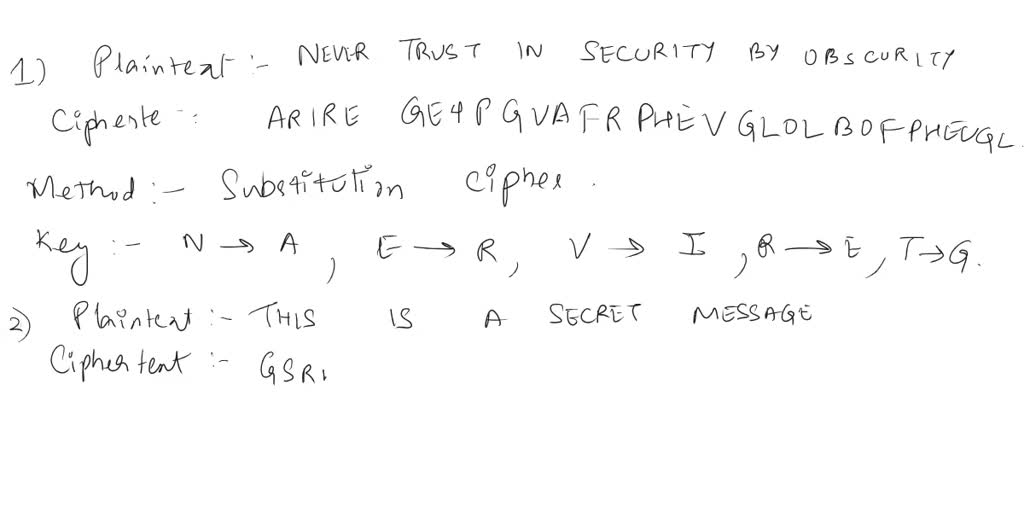 1) Plaintext :- NEVER TRUST IN SECURITY BY OBSCURITY
Cipherte :- ARIRE GE4PGVAFRPHEVGLOLBOFPHEVGL.
Method :- Substitution Cipher.
Key :- N → A, E → R, V → I, R → E, T → G.
2) Plaintext :- THIS IS A SECRET MESSAGE
Ciphertext :- GSRI